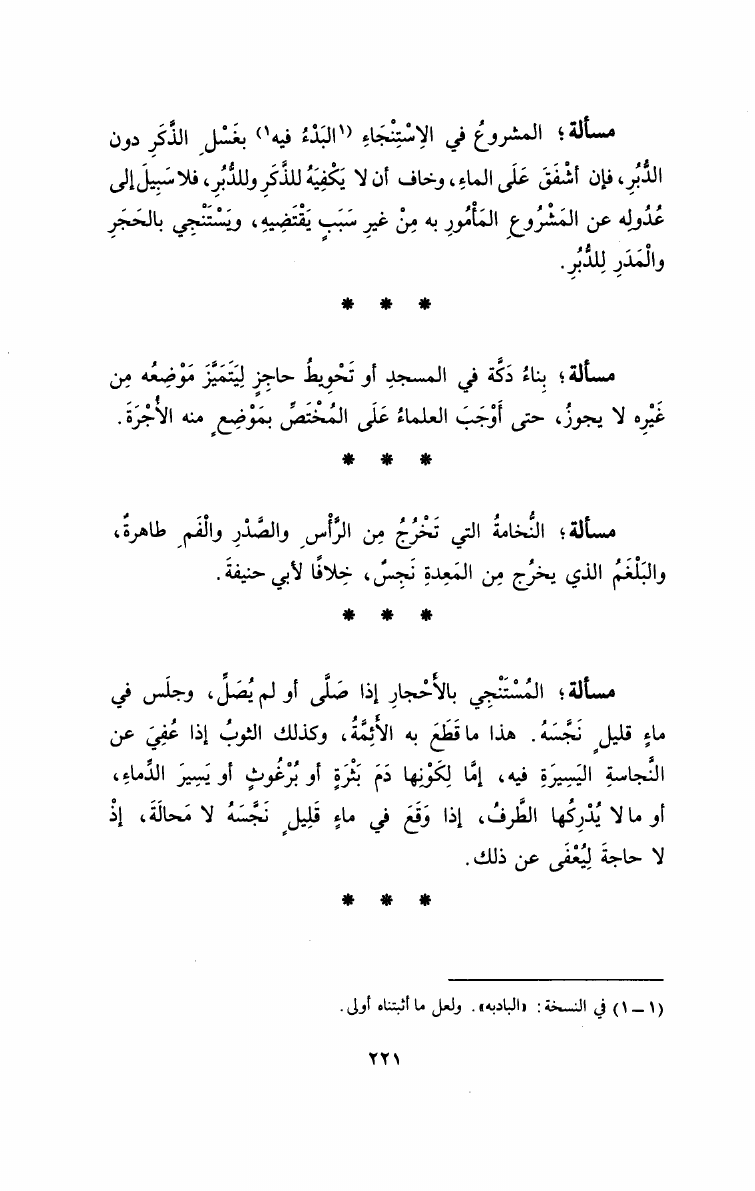 مسألة؛ المشروعُ في الاِسْتِنْجَاءِ (١البَدْءُ فيه١) بغَسْلِ الذَّكَرِ دون
الدُّبُرِ، فإن أشْفَقَ عَلَى الماءِ، وخاف أن لا يَكْفِيَهُ للذَّكَرِ وللدُّبُرِ، فلا سَبِيلَ إلى
عُدُولِه عن المَشْرُوعِ المَأْمُورِ به مِنْ غيرِ سَبَبٍ يَقْتَضِيهِ، ويَسْتَنْجِي بالحَجَرِ
والْمَدَرِ لِلدُّبُرِ.
* * *
مسألة؛ بِناءُ دَكَّة في المسجدِ أو تَحْوِيطُ حاجِزٍ لِيَتَمَيَّزَ مَوْضِعُه مِن
غَيْرِه لا يجوزُ، حتى أَوْجَبَ العلماءُ عَلَى المُخْتَصِّ بمَوْضِعٍ منه الأُجْرَةَ.
* * *
مسألة؛ النُّخامةُ التي تَخْرُجُ مِن الرَّأْسِ والصَّدْرِ والْفَمِ طاهرةٌ،
والبَلْغَمُ الذي يخرُج مِن المَعِدةِ نَجِسٌ، خِلافًا لأبي حنيفةَ.
* * *
مسألة؛ المُسْتَنْجِي بالأَحْجارِ إذا صَلَّى أو لم يُصَلِّ، وجلَس في
ماءٍ قليلٍ نَجَّسَهُ. هذا ما قَطَعَ به الأَئِمَّةُ، وكذلك الثوبُ إذا عُفِيَ عن
النَّجاسةِ اليَسِيرَةِ فيه، إمَّا لِكَوْنِها دَمَ بَثْرَةٍ أو بُرْغُوثٍ أو يَسِيرَ الدِّماءِ،
أو ما لا يُدْرِكُها الطَّرفُ، إذا وَقَعَ في ماءٍ قَلِيلٍ نَجَّسَهُ لا مَحالَةَ، إذْ
لا حاجةَ لِيُعْفَى عن ذلك.
* * *
(١ – ١) في النسخة: «البادبه». ولعل ما أثبتناه أولى.
٢٢١